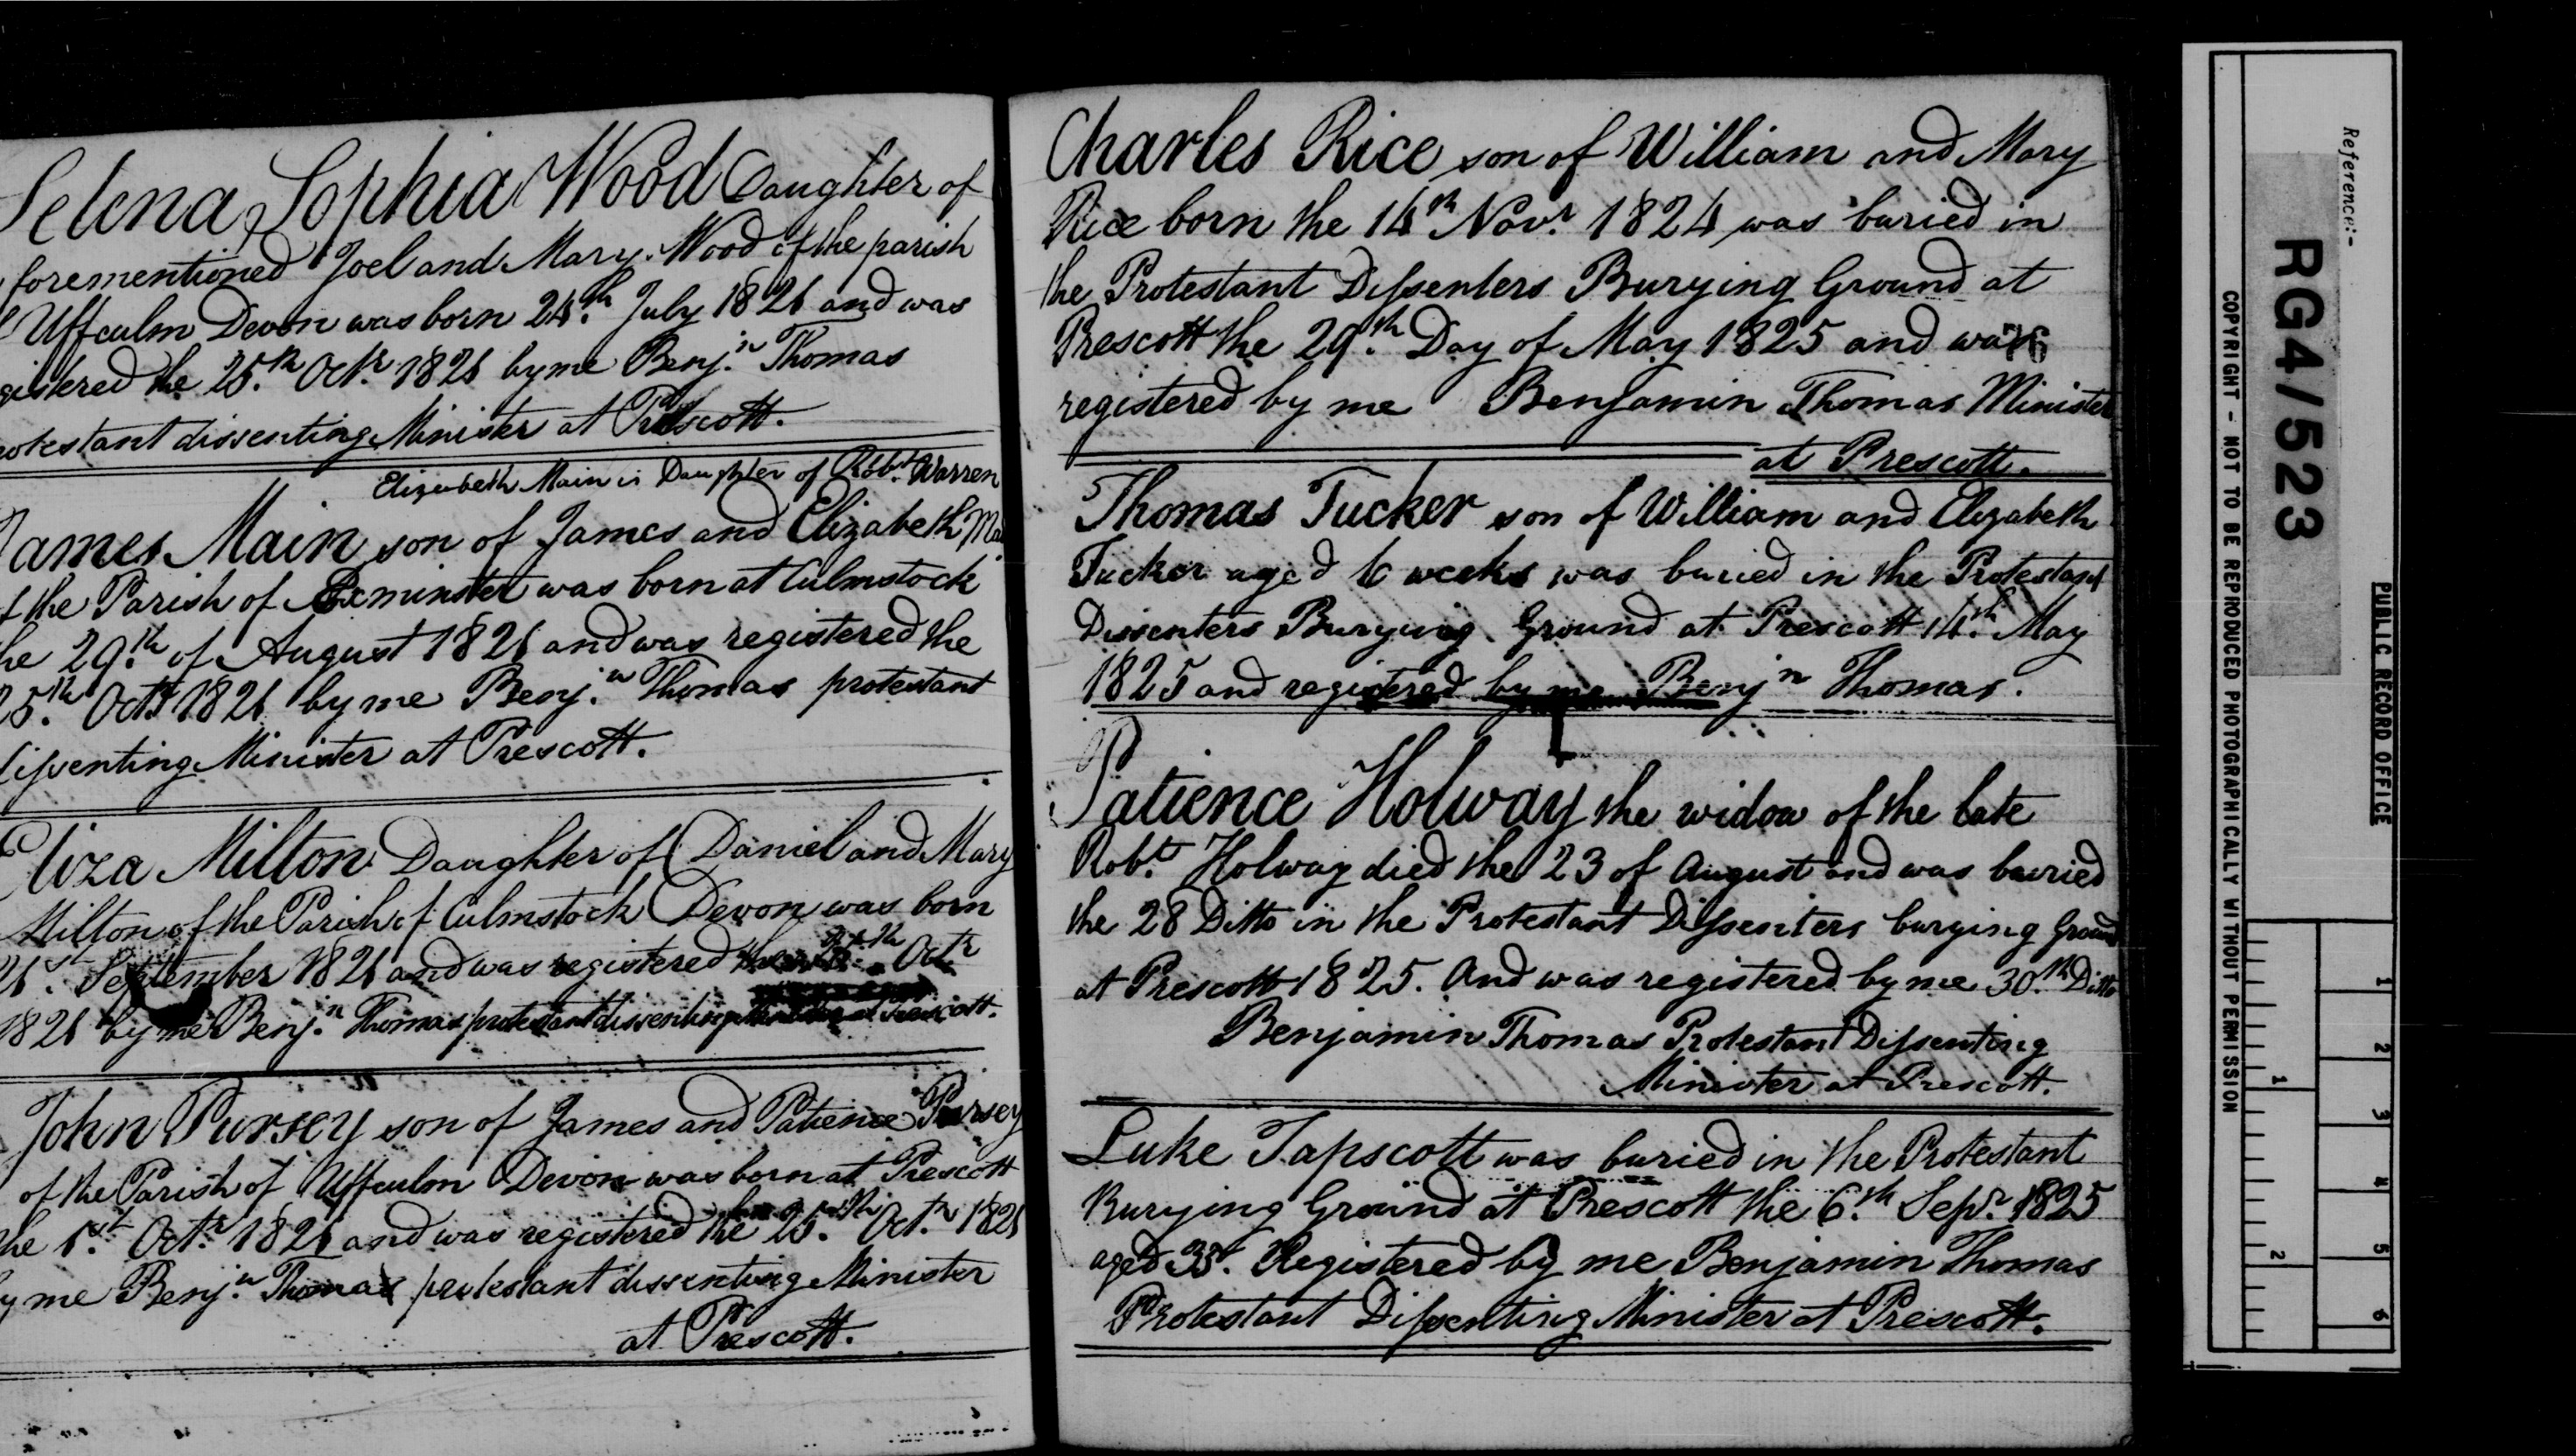 Selena Sophia Wood Daughter of
forementioned Joel and Mary Wood of the parish
Uffculm Devon was born 24.th July 1821 and was
gistered the 25.th Octr. 1821 by me Benj.n Thomas
rotestant dissenting Minister at Prescott.
Elizabeth Main is Daughter of Robt. Warren
James Main son of James and Elizabeth Ma
f the Parish of Axminster was born at Culmstock
he 29.th of August 1821 and was registered the
25.th Octr. 1821 by me Benj.n Thomas protestant
dissenting Minister at Prescott.
Eliza Milton Daughter of Daniel and Mary
Milton of the Parish of Culmstock Devon was born
21st. September 1821 and was registered the Octr
1821 by me Benj.n Thomas protestant dissenting Prescott.
John Pursey son of James and Patience Pursey
of the Parish of Uffculm Devon was born at Prescott
he 1st. Octr. 1821 and was registered the 25.th Octr. 1821
y me Benj.n Thomas protestant dissenting Minister
at Prescott.
Charles Rice son of William and Mary
Rice born the 14th Novr. 1824 was buried in
the Protestant Dissenters Burying Ground at
Prescott the 29.th Day of May 1825 and was
76
registered by me Benjamin Thomas Minister
at Prescott.
Thomas Tucker son of William and Elizabeth
Tucker aged 6 weeks was buried in the Protestant
Dissenters Burying Ground at Prescott 14.th May
1825 and registered by me Benjn Thomas.
Patience Holway the widow of the late
Robt. Holway died the 23 of August and was buried
the 28 Ditto in the Protestant Dissenters burying Ground
at Prescott 1825. And was registered by me 30.th Ditto
Benjamin Thomas Protestant Dissenting
Minister at Prescott.
Luke Tapscott was buried in the Protestant
Burying Ground at Prescott the 6.th Sepr. 1825
aged 33. Registered by me Benjamin Thomas
Protestant Dissenting Minister at Prescott.
PUBLIC RECORD OFFICE
Reference:-
RG4/523
COPYRIGHT - NOT TO BE REPRODUCED PHOTOGRAPHICALLY WITHOUT PERMISSION
1 2 3 4 5 6
1 2